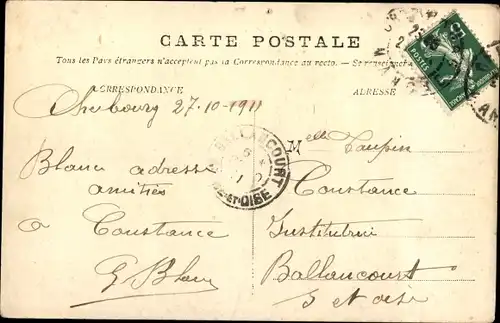 CARTE POSTALE
Tous les Pays étrangers n'acceptent pas la Correspondance au recto. — Se renseigner à la
CORRESPONDANCE
ADRESSE
Cherbourg 27-10-1911
Blanc adresse
amitiés
a Constance
G Blanc
BALLANCOURT
ET-OISE
Melle Taupin
Constance
Institutrice
Ballancourt
S et Oise